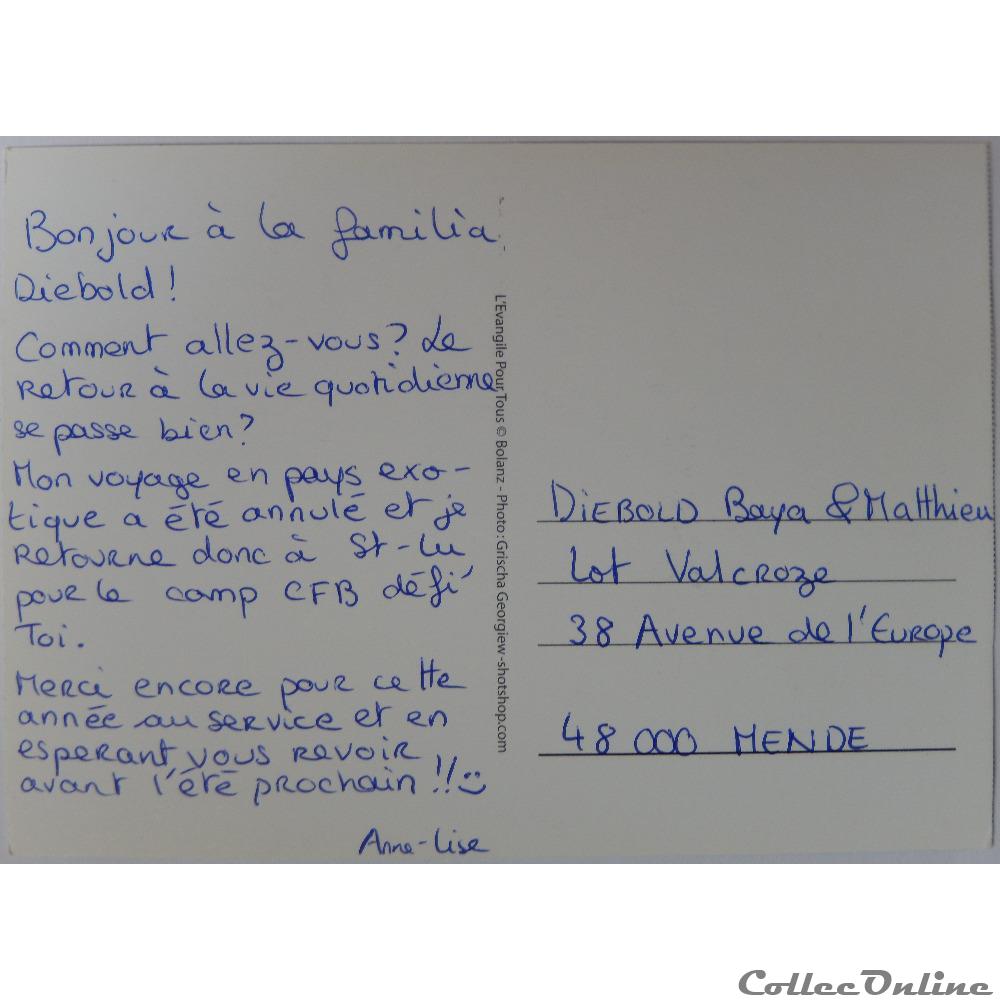 Bonjour à la familia
Diebold !
Comment allez-vous ? Le
retour à la vie quotidienne
se passe bien ?
Mon voyage en pays exo-
tique a été annulé et je
retourne donc à St-Lu
pour le camp CFB défi'
Toi.
Merci encore pour cette
année au service et en
esperant vous revoir
avant l'été prochain !! :)
Anne-Lise
L'Evangile Pour Tous © Bolanz - Photo : Grischa Georgiew -shotshop.com
DIEBOLD Baya & Matthieu
Lot Valcroze
38 Avenue de l'Europe
48 000 MENDE
CollecOnline